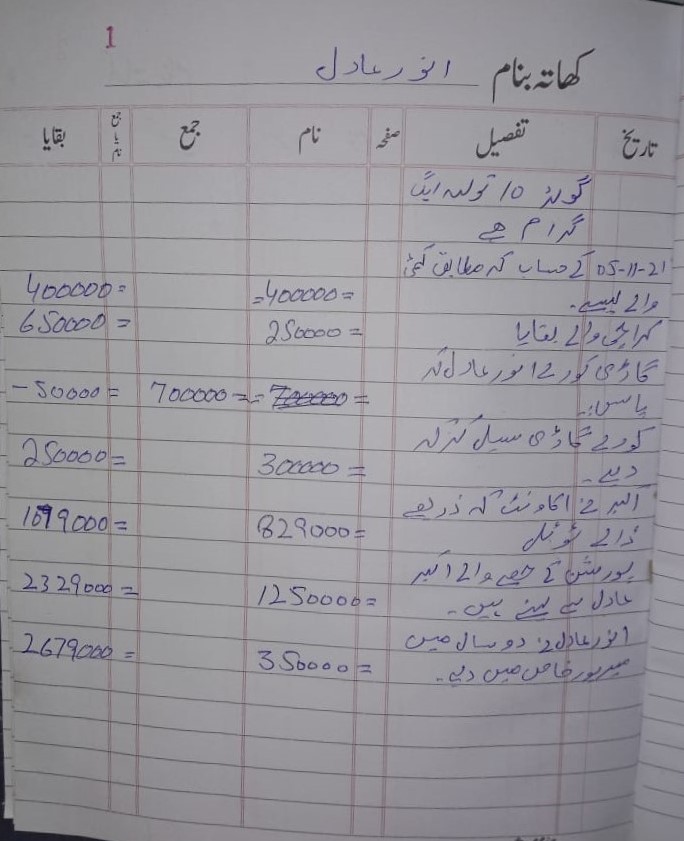 1
کھاتہ بنام انور عادل
تاریخ تفصیل صفحہ نام جمع جمع یا نام بقایا
گولڈ 10 تولہ ایک
گرام ہے
05-11-21 کے حساب کے مطابق کمیٹی
والے پیسے۔ =400000= 400000=
کراچی والے بقایا 250000= 650000=
گاڑی کورے انور عادل کے
پاس:۔ 700000= 700000= -50000=
کورے گاڑی سیل کر کے
دیے۔ 300000= 250000=
اکبر نے اکاونٹ کے ذریعے
ڈالے ٹوٹل 829000= 1079000=
پورشن کے حصے والے اکبر
عادل سے لینے ہیں۔ 1250000= 2329000=
انور عادل نے دو سال میں
میرپورخاص میں دیے۔ 350000= 2679000=